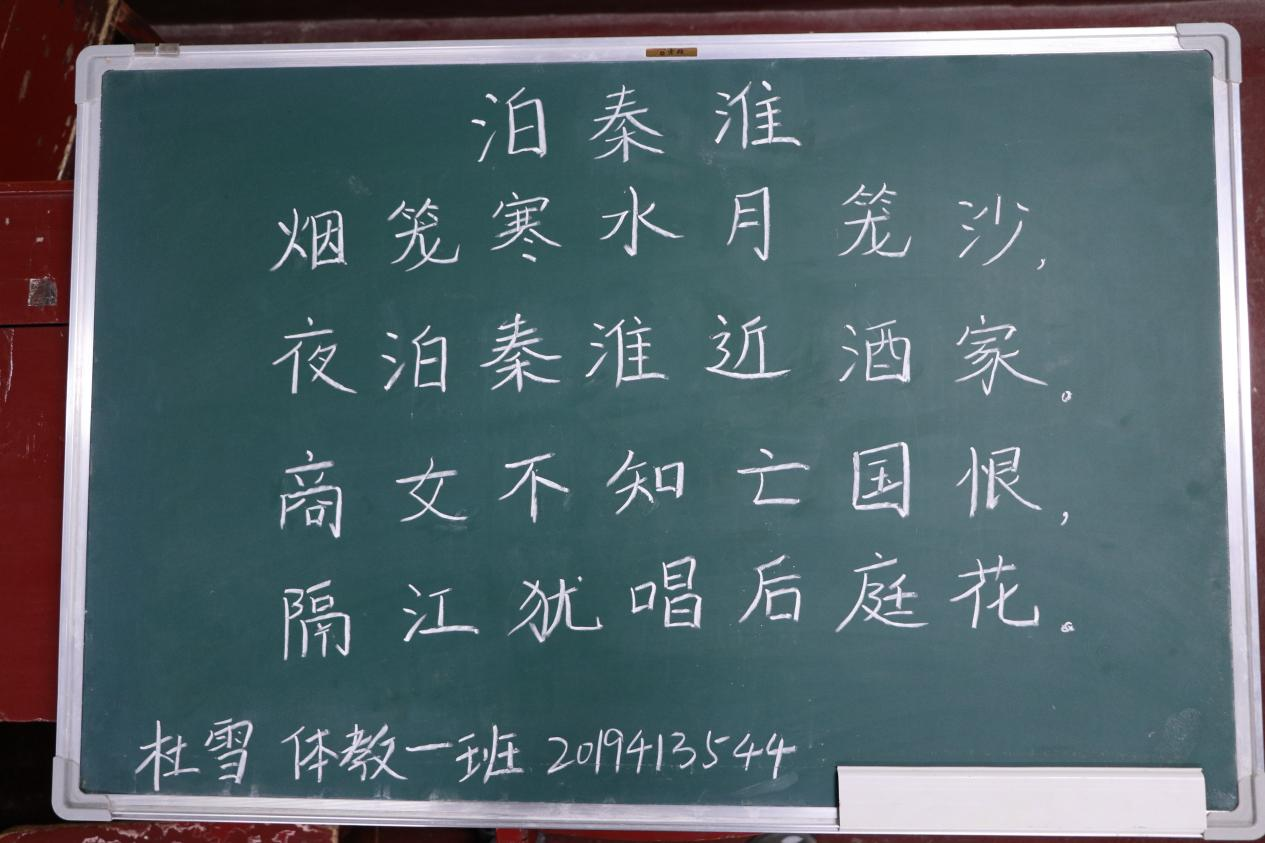 泊秦淮
烟笼寒水月笼沙,
夜泊秦淮近酒家。
商女不知亡国恨,
隔江犹唱后庭花。
杜雪 体教一班 2019413544